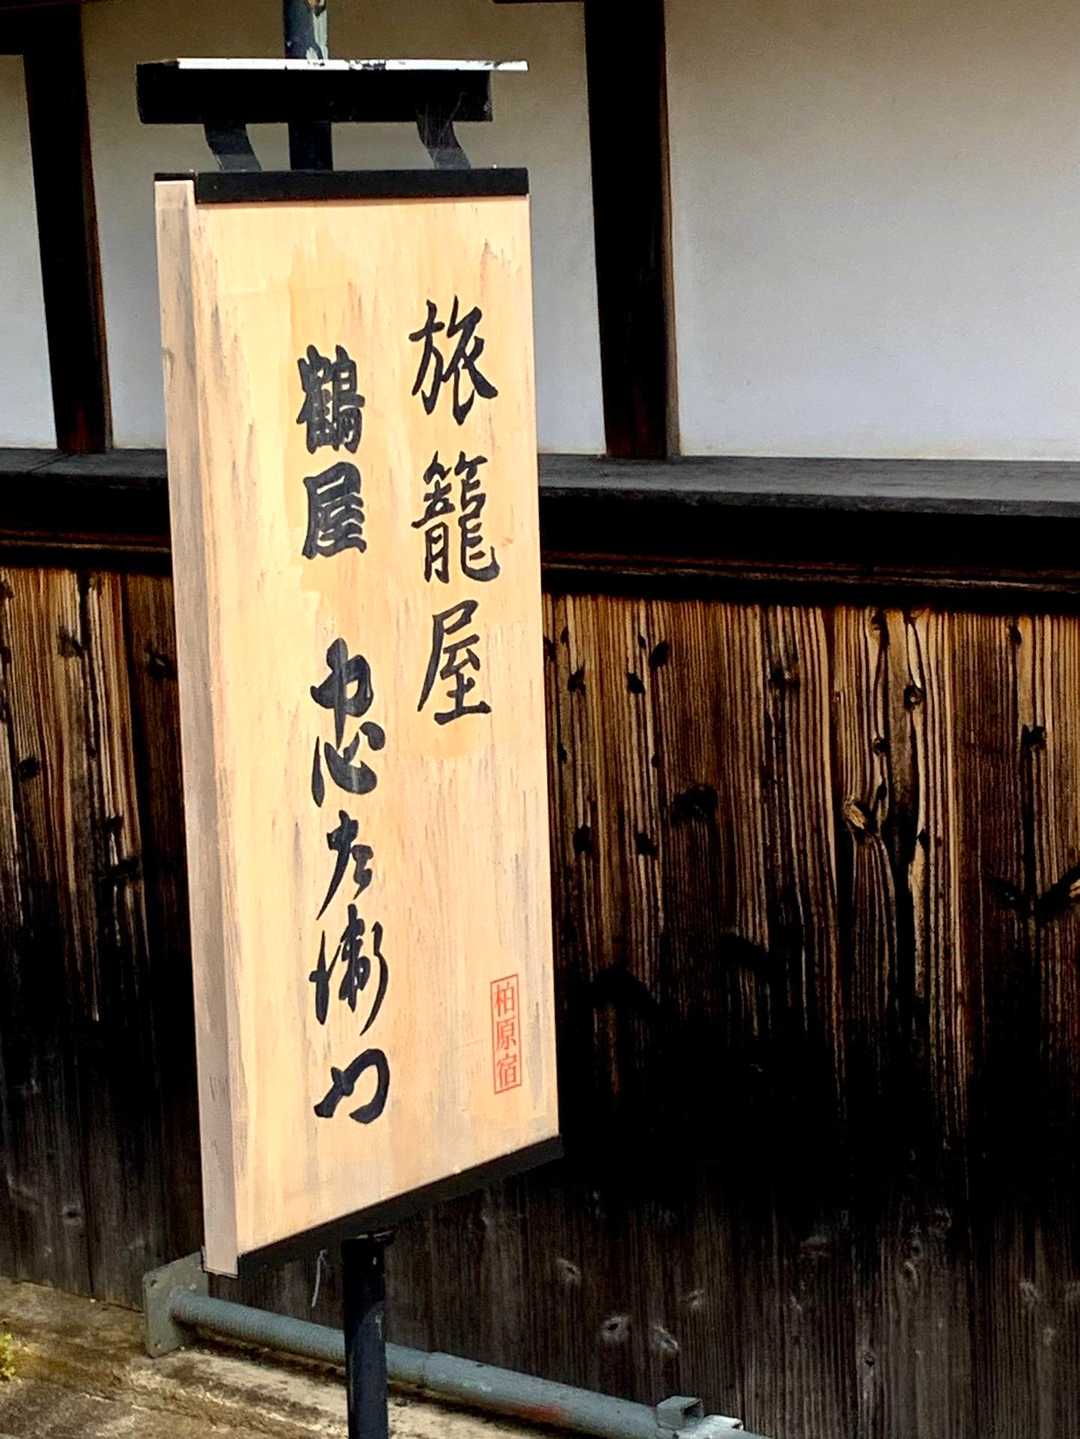 旅籠屋
鶴屋 忠左衛门
柏原宿